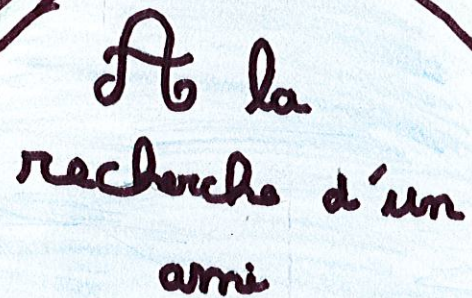 A la
recherche d'un
ami